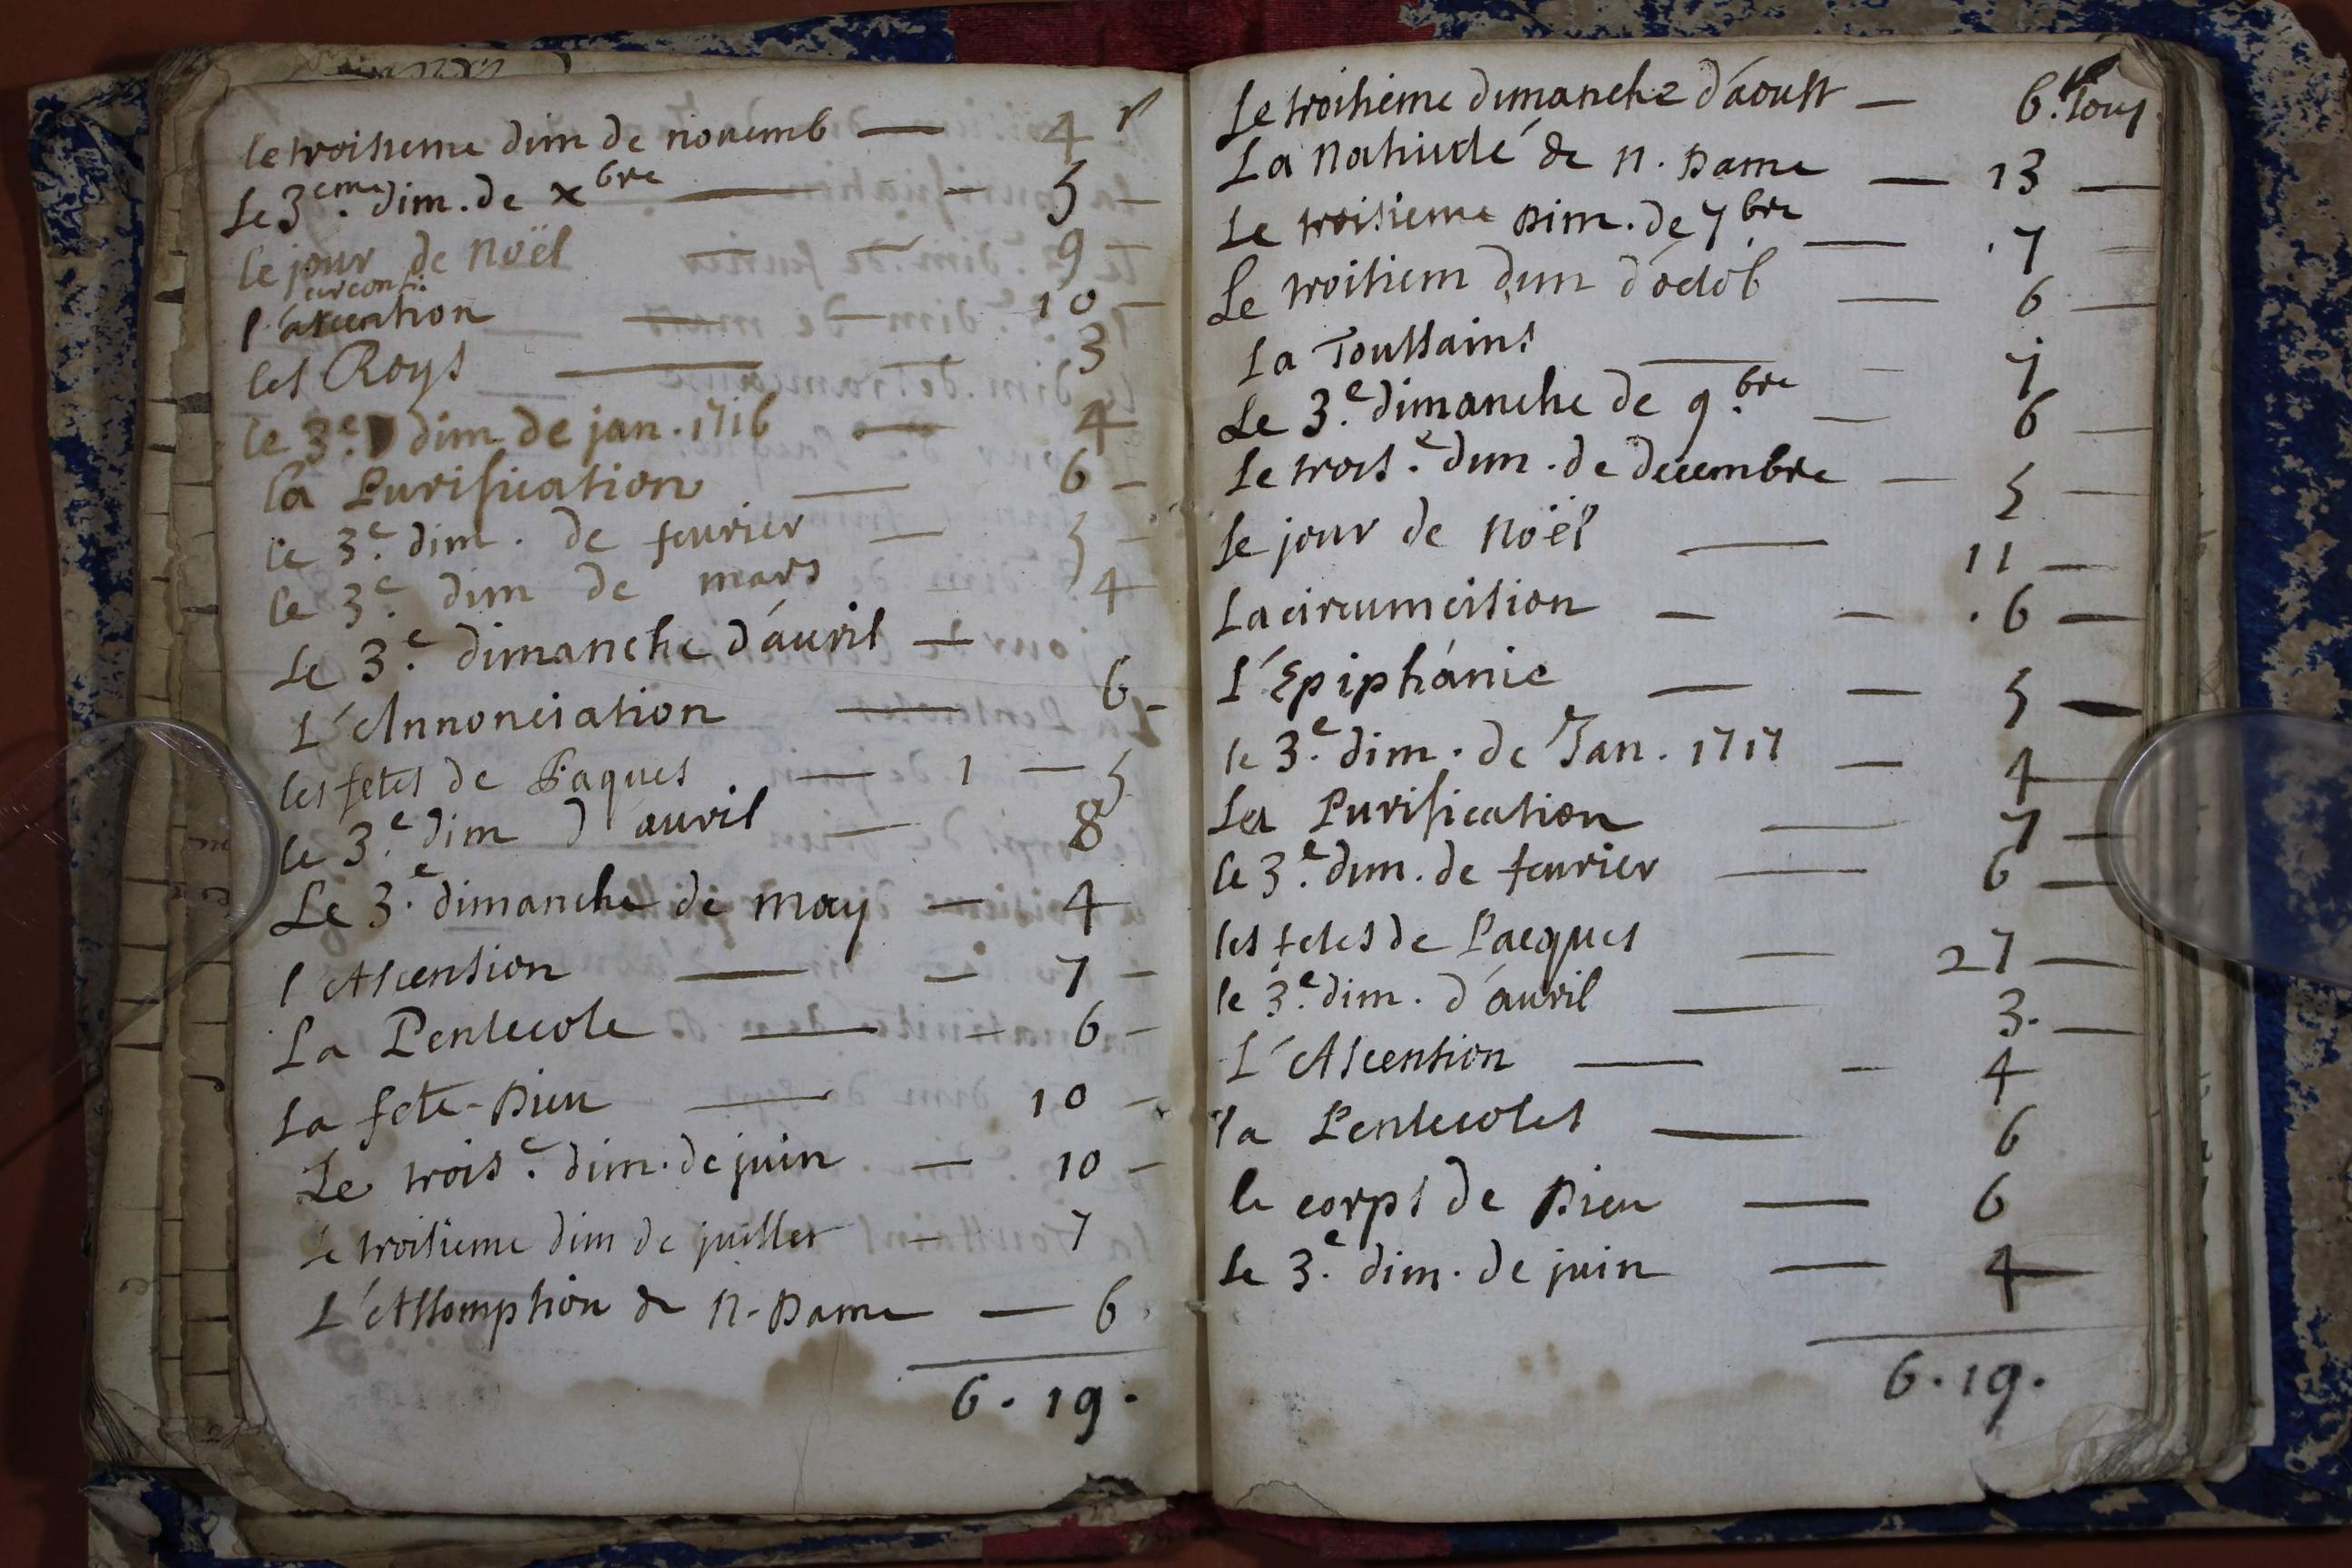 le troisieme dim de nouemb — 4 s
Le 3.eme dim. de xbre — 5 —
le jour de Noël — 9 —
circonsi.
l'ascention — 10 —
les Roys — 3
le 3.e dim de jan. 1716 — 4
la Purification — 6 —
le 3.e dim. de feurier — 5 —
le 3.e dim de mars 4
Le 3.e dimanche d'auril —
L'Annonciation — 6 —
les fetes de Paques — 1 — 5
le 3.e dim d'auril — 8
Le 3.e dimanche de may — 4
l'Ascension — 7 —
La Pentecote — 6 —
La fete-Dieu — 10 —
Le trois.e dim. de juin — 10 —
Le troisieme dim de juillet — 7
L'Assomption de N-Dame — 6
6 . 19 .
Le troisieme dimanche d'aoust — 6. sous
La Natiuité de N. Dame — 13 —
Le troisieme Dim. de 7bre — . 7 —
Le troisiem dim d'octob — 6 —
La Toussains — 7
Le 3.e dimanche de 9.bre — 6 —
Le trois.e dim. de decembre — 5 —
Le jour de Noël — 11 —
La circumcision — — . 6 —
L'Epiphanie — — 5 —
le 3.e dim. de Jan. 1717 — 4 —
La Purification — 7 —
le 3.e dim. de feurier — 6 —
les fetes de Pacques — 27 —
le 3.e dim. d'auril — 3. —
L'Ascention — — 4
la Pentecotes — 6
le corps de Dieu — 6
Le 3.e dim. de juin — 4 —
6 . 19 .